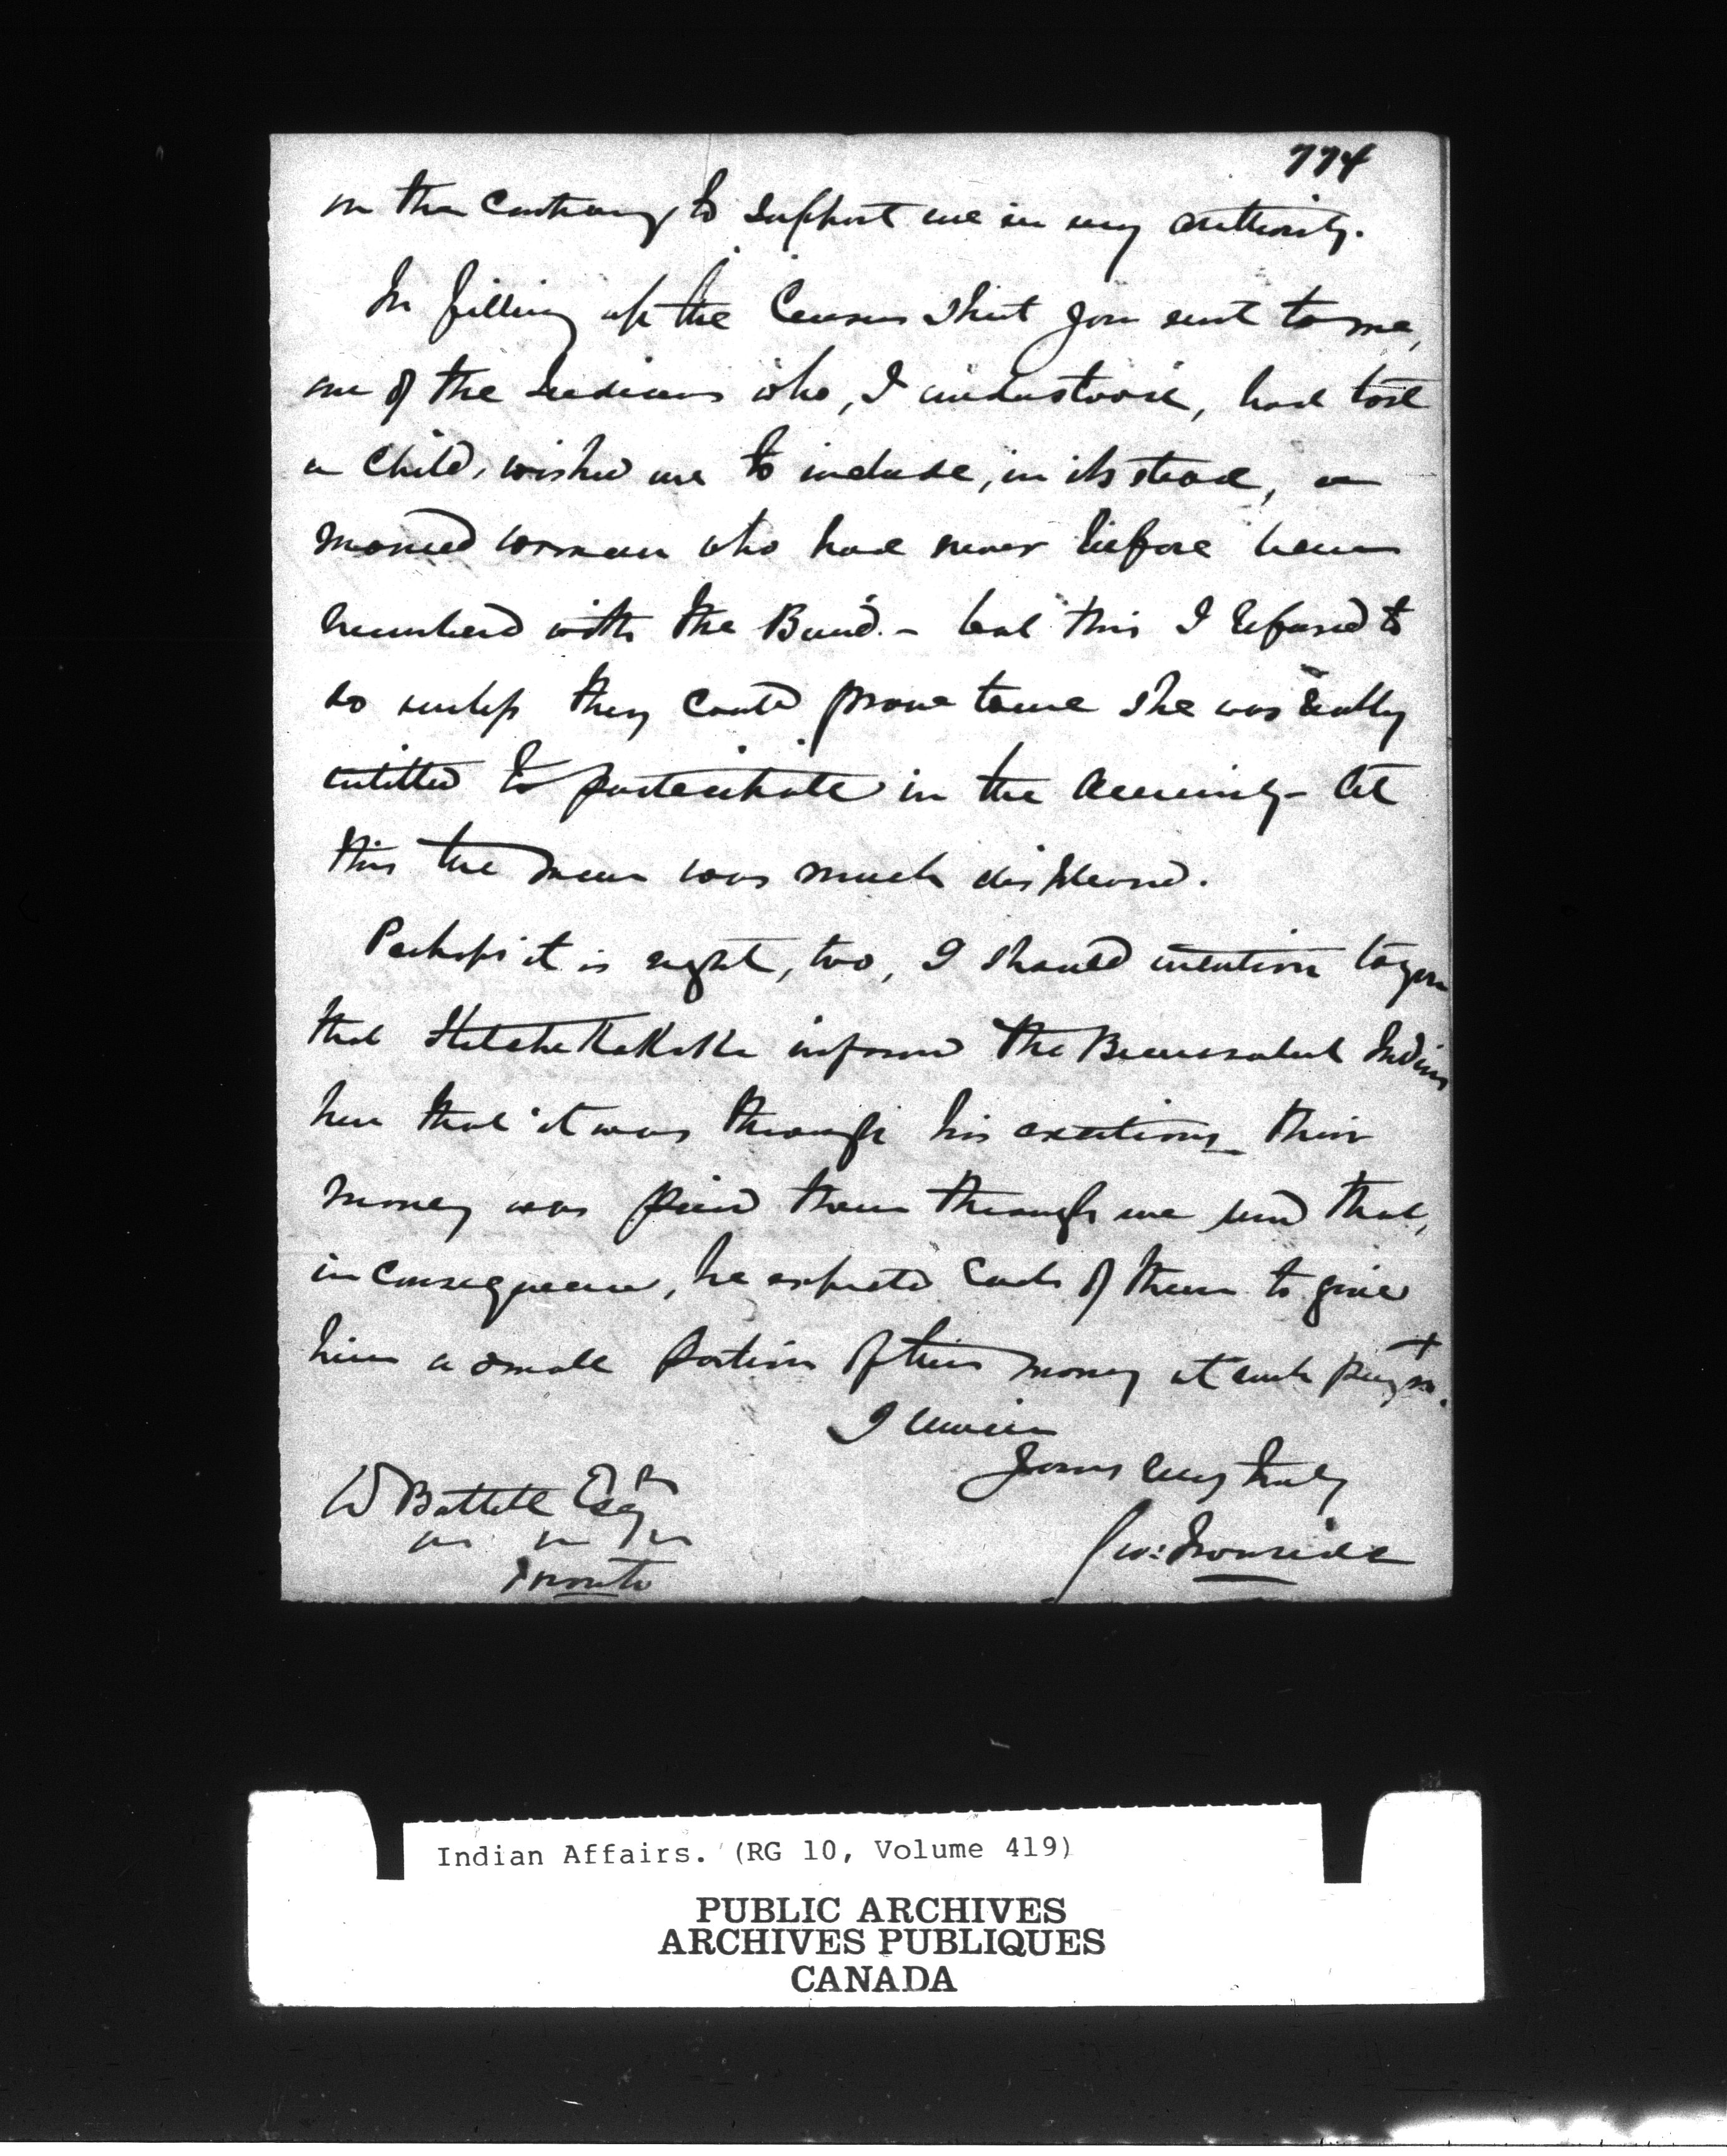 774
on the contrary, to support me in my authority.
In filling up the Census Sheet you sent to me,
one of the Indians who, I understood, had lost
a child, wished me to include, in its stead, a
married woman who had never before been
numbered with the Band. - but this I refused to
do unless they could prove to me she was really
entitled to participate in the Annuity - At
this the man was much displeased.
Perhaps it is right, too, I should mention to you
that informed the Beausoleil Indians
here that it was through his exertions their
money was paid them through me and that,
in consequence, he expected each of them to give
him a small portion of their money at each paym.t
I remain
Yours very truly
W Bartlett Esqr
Toronto
Geo: Ironside
Indian Affairs. (RG 10, Volume 419)
PUBLIC ARCHIVES
ARCHIVES PUBLIQUES
CANADA